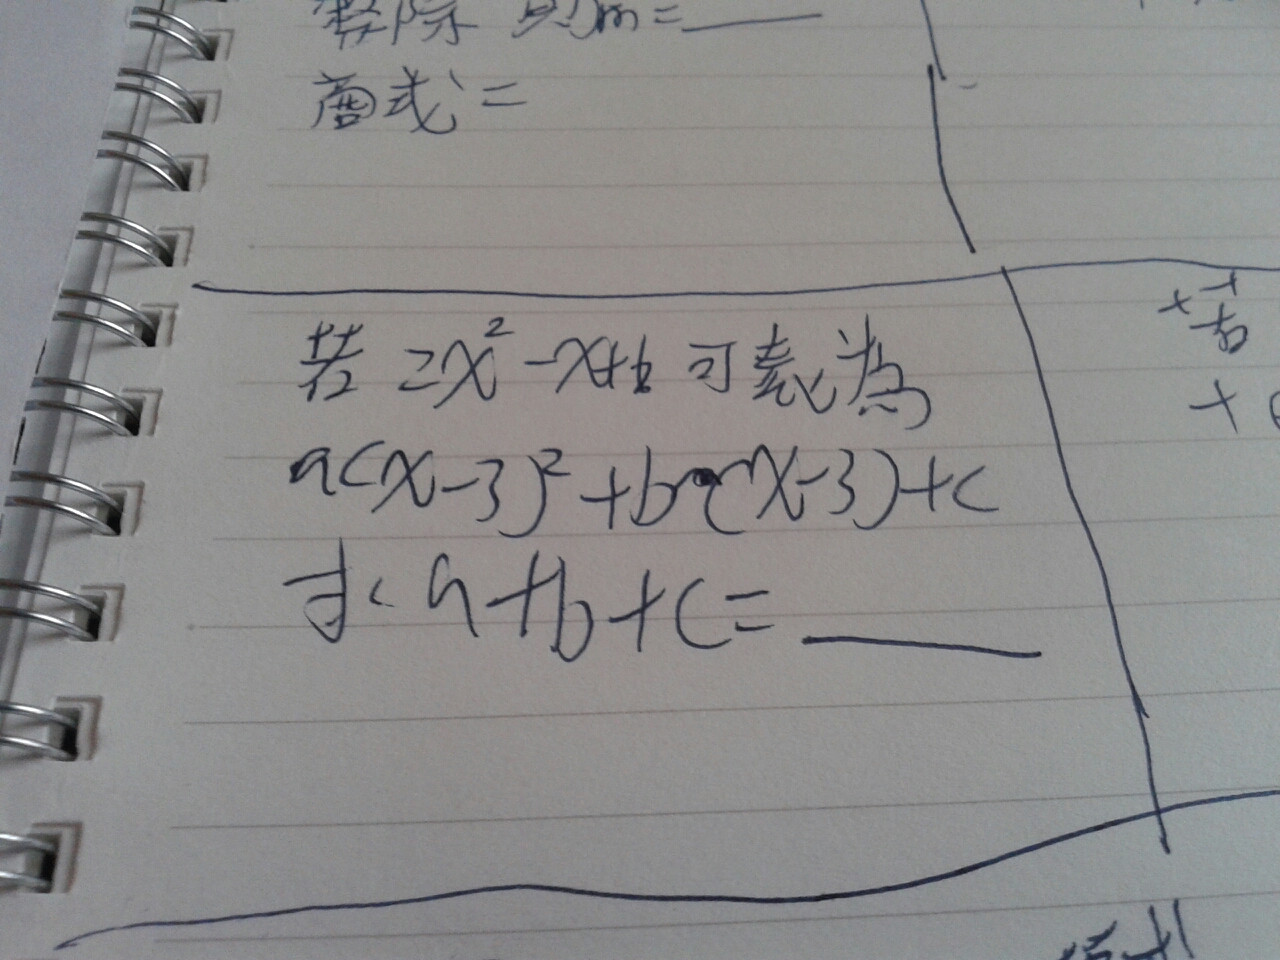 整除 則m=
商式=
若 2x²-x+6 可表為
a(x-3)²+b(x-3)+c
求 a+b+c=
若